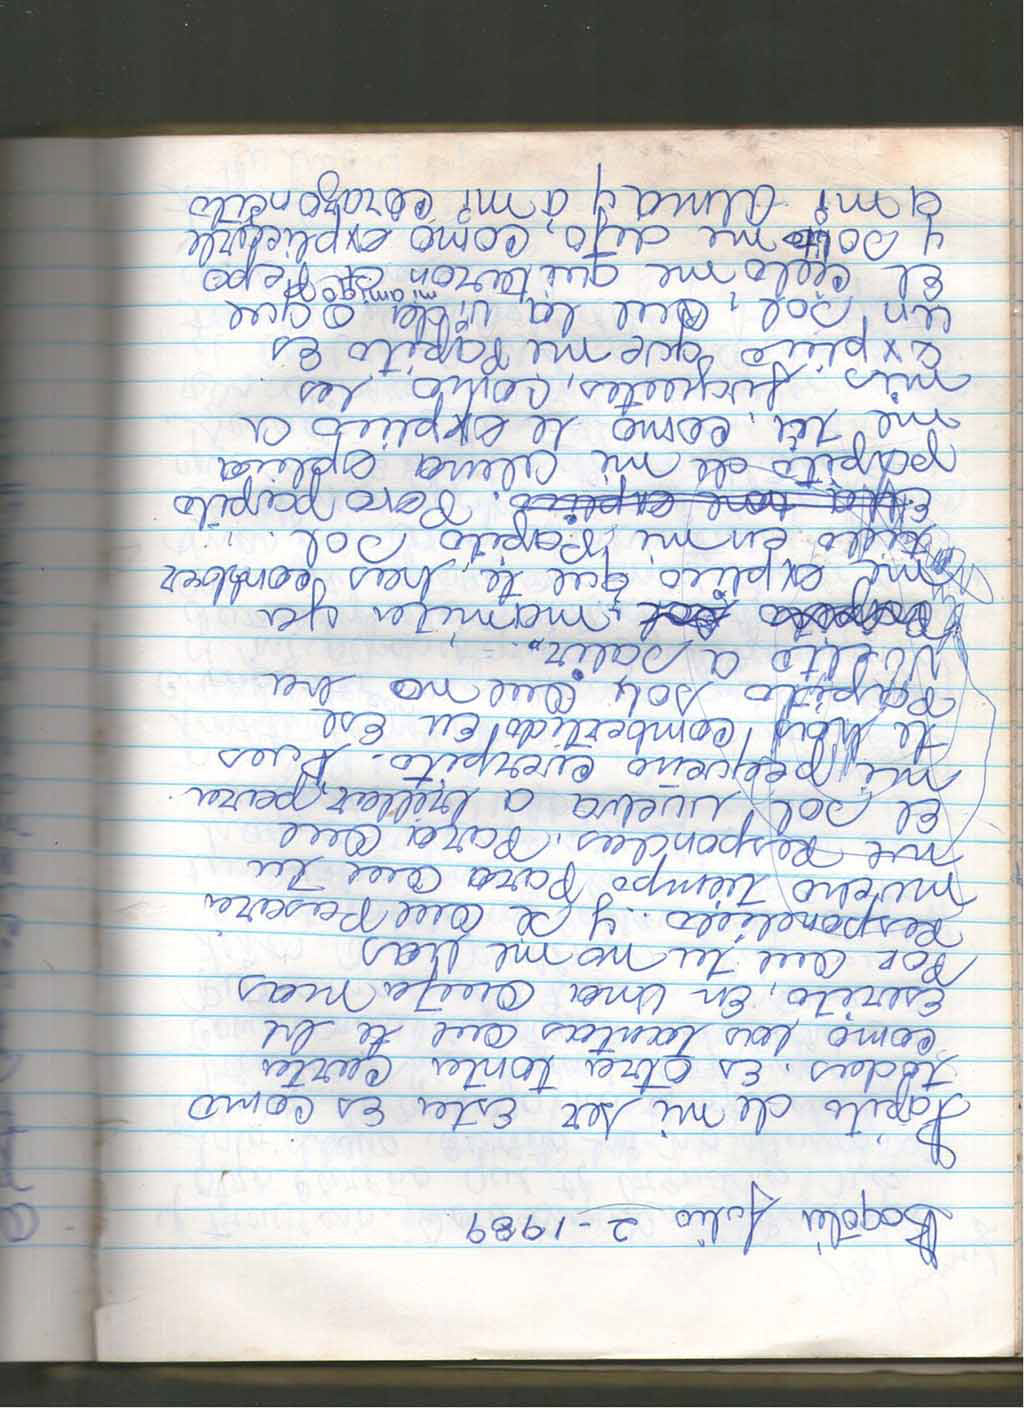 Bogotá Julio 2-1989
Papito de mi ser Esta Es como
todas. Es otra tonta Carta
como las tantas que te he
Escrito, En una Queja mas
Por Que tu no me has
Respondido. y se Que Pasara
mucho tiempo Para Que tu
me Respondas. Para Que
El Sol vuelva a brillar, para
mi pequeño cuerpito. Pues
te has combertido En Ese
Papito Sol, Que no ha
Vuelto a salir...
mamita ya
me explico que te has comber
tido en mi Papito Sol.
Pero papito
papito de mi alma esplica
me tu, como le explico a
mis juguetes, como les
explico que mi Papito Es
un Sol, Que la vida o que
El cielo me quitaron mi amigo Pepo
y solito me dejo, como explicarle
a mi Alma y a mi corazoncito